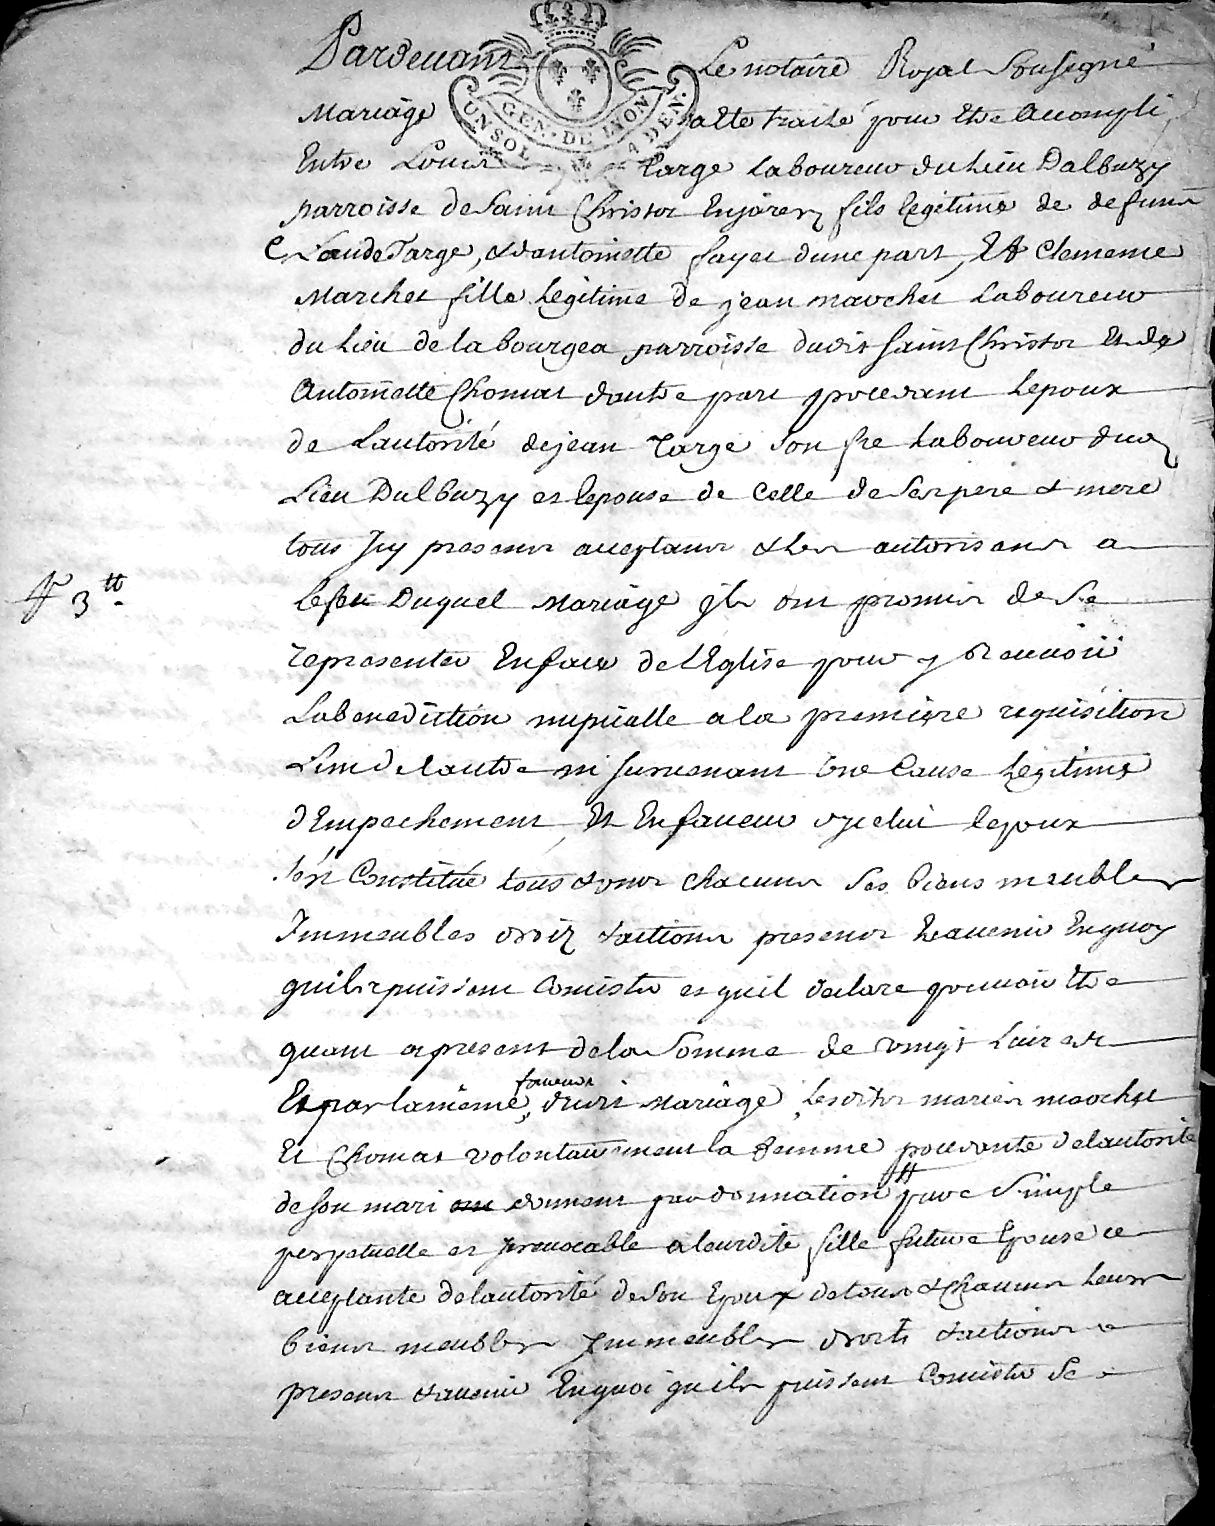 Pardevant Le notaire Royal Sousigné
GEN. DE LYON
UN SOL 4 DEN.
Mariage a été traité pour être accompli
Entre Louis Targe laboureur du lieu Dalbuzy
parroisse de Saint Christot Enjarez fils legitime de defunt
Claude Targe, & dantoinette fayet dune part, Et Clemence
Marchet fille legitime de jean marchet laboureur
du lieu de la bourgea parroisse dudit Saint Christot Et de
Antoinette Chomat dautre part procedant lepoux
de lautorité de jean Targe son fre laboureur du
lieu Dalbuzy et lepouse de celle de ses pere & mere
tous Icy presents acceptants & les autorisants a
leffet Duquel mariage jls ont promis de se
representer Enface de lEglise pour y Recevoir
Labenediction nuptialle a la premiere requisition
Lun de lautre ni survenant une Cause legitime
dEmpechement, Et Enfaveur dycelui lepoux
sest Constitué tous & uns chacuns ses biens meubles
Immeubles droitz & actions presents & avenir Enquoy
quils puissent consister et quil declare pouvoir être
quant apresent de la Somme de vingt livres
Et par la même faveur dudit mariage, lesdits mariés marchet
Et Chomat volontairement la femme procedante de lautorité
de son mari ont donnent par donnation pure simple
perpetuelle et jrrevocable a leurdite fille future Epouse ce
acceptante de lautorité de son Epoux de tous & Chacuns leurs
biens meubles Jmmeubles droits & actions
presents & avenir Enquoi quils puissent consister se
3 tt